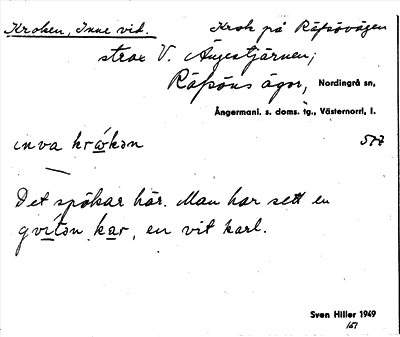 Kroken, Inne vid. Krok på Räfsövägen
strax V. Ångestjärnen;
Räfsöns ägor, Nordingrå sn,
Ångermanl. s. doms. tg., Västernorrl. l.
ınva krωkən 517
Det spökar här. Man har sett en
gvitən kar, en vit karl.
Sven Hiller 1949
167